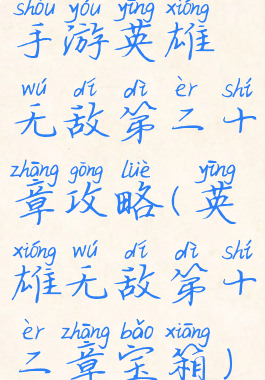 shǒu yóu yīng xióng
手游英雄
wú dí dì èr shí
无敌第二十
zhāng gōng lüè yīng
章攻略(英
xióng wú dí dì shí
雄无敌第十
èr zhāng bǎo xiāng
二章宝箱)